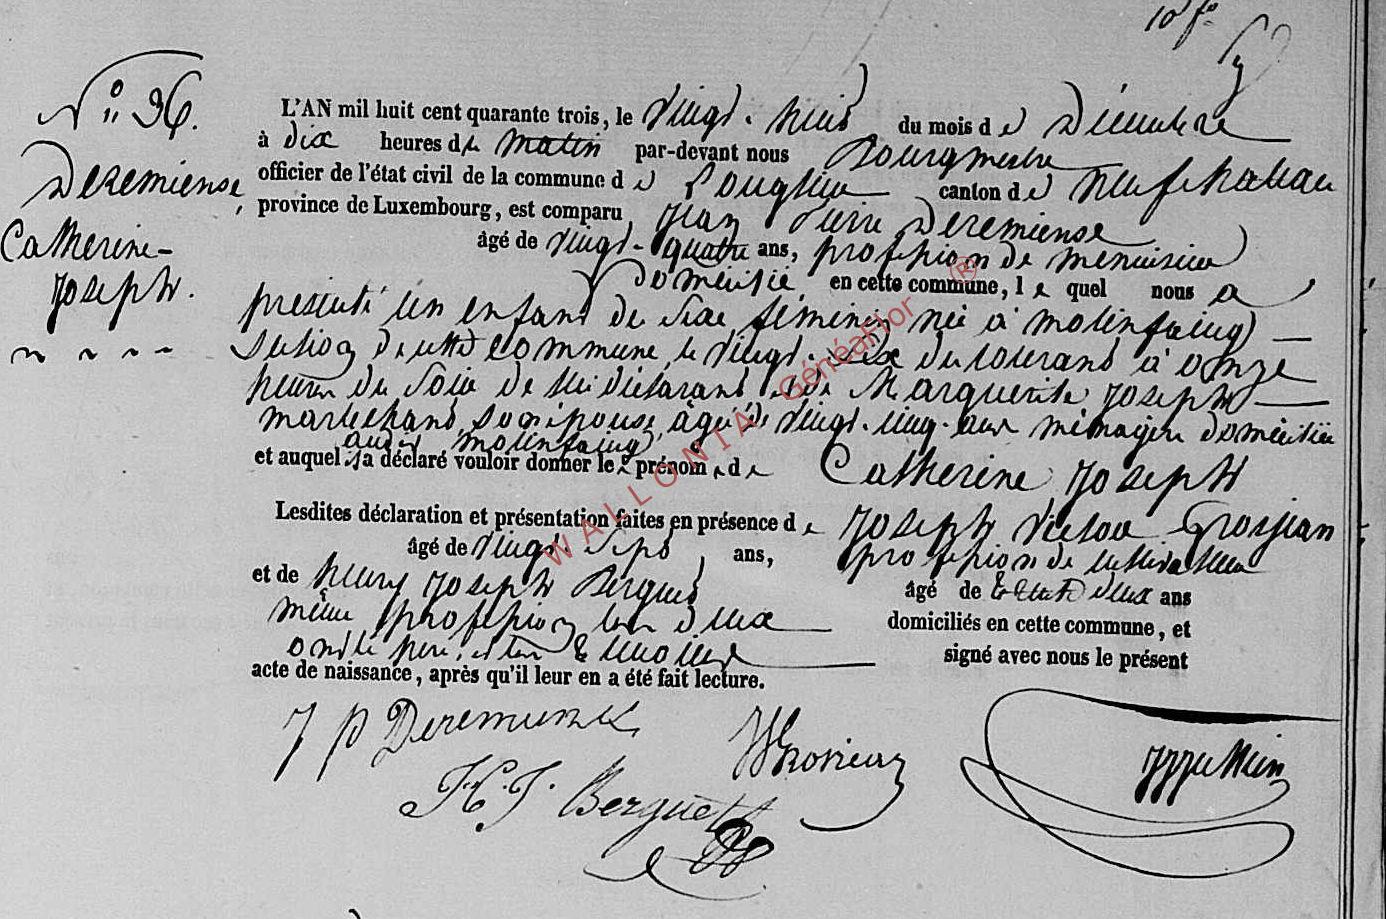 10 fo
N° 36.
Deremiense,
Catherine-
Joseph.
L'AN mil huit cent quarante trois, le vingt-huit du mois d e Décembre
à dix heures du matin par-devant nous Bourgmestre
officier de l'état civil de la commune d e Longlier canton d e Neufchateau
province de Luxembourg, est comparu Jean Pierre Deremiense
âgé de vingt-quatre ans, profession de menuisier
domicilié en cette commune, l e quel nous a
présenté un enfant de sexe féminin née à molinfaing
section de cette commune, le vingt-six du courant à onze
heures du soir de lui déclarant et de Marguerite Joseph
marechand son épouse âgée de vingt-cinq ans ménagère domiciliée
audit molinfaing
et auquel il a déclaré vouloir donner les prénoms de Catherine Joseph
Lesdites déclaration et présentation faites en présence d e Joseph Victor Grosjean
âgé de vingt-sept ans, profession de cultivateur
et de henry Joseph Berguet âgé de trente deux ans
même profession tous deux domiciliés en cette commune, et
ont le père, et les témoins signé avec nous le présent
acte de naissance, après qu'il leur en a été fait lecture.
J P Deremiense
H. J. Berguet
WALLONIA GénéaFlor ®